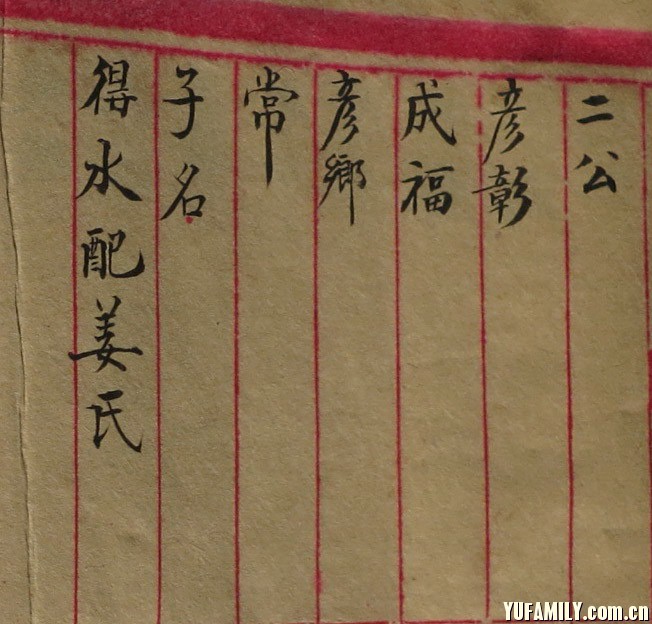 二公
彦彰
成福
彦鄉
常
子名
得水配姜氏
YUFAMILY.com.cn